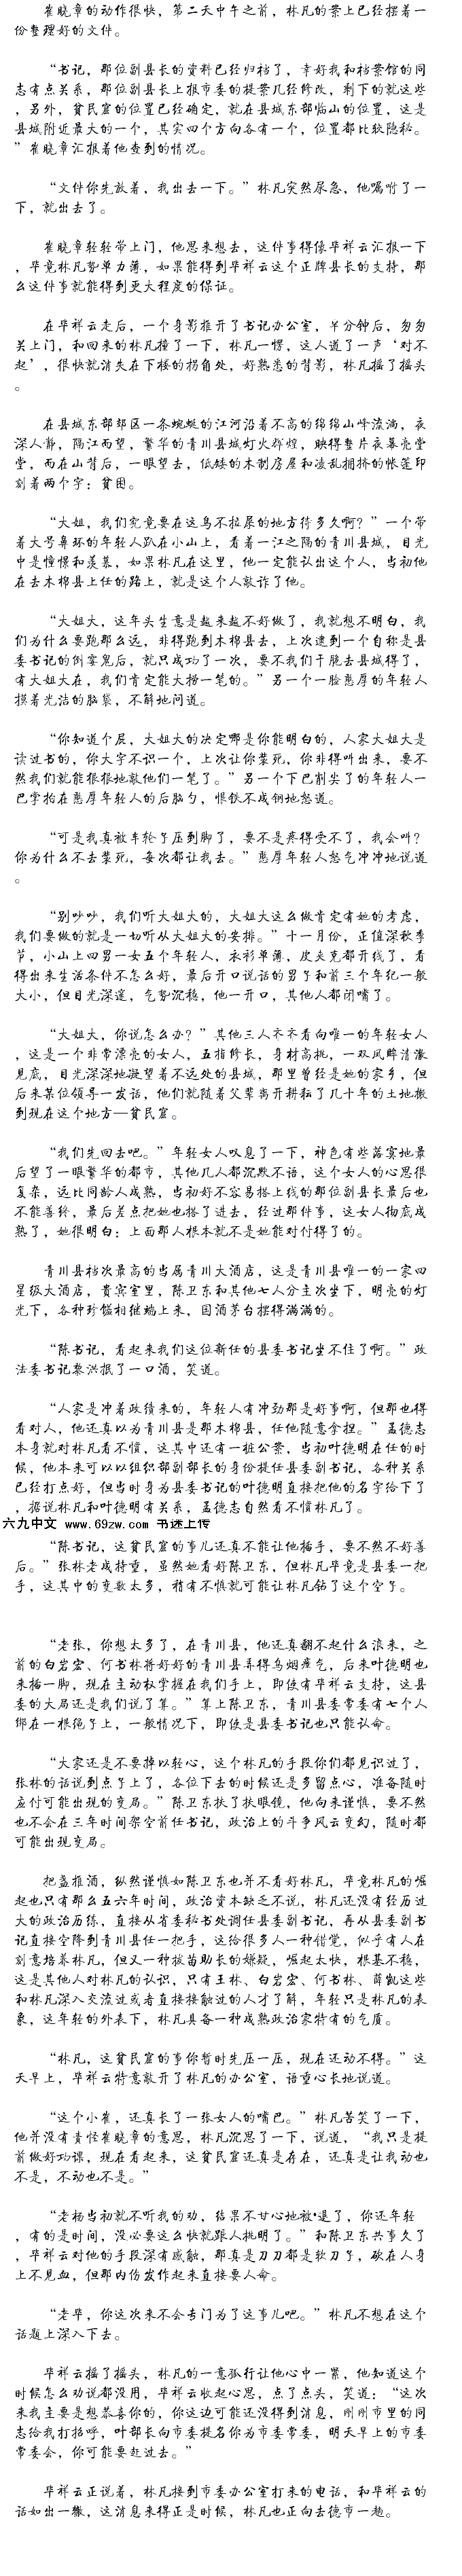 崔晓章的动作很快，第二天中午之前，林凡的案上已经摆着一
份整理好的文件。
“书记，那位副县长的资料已经归档了，幸好我和档案馆的同
志有点关系，那位副县长上报市委的提案几经修改，剩下的就这些
，另外，贫民窟的位置已经确定，就在县城东部临山的位置，这是
县城附近最大的一个，其实四个方向各有一个，位置都比较隐秘。
”崔晓章汇报着他查到的情况。
“文件你先放着，我出去一下。”林凡突然尿急，他嘱咐了一
下，就出去了。
崔晓章轻轻带上门，他思来想去，这件事得像毕祥云汇报一下
，毕竟林凡势单力薄，如果能得到毕祥云这个正牌县长的支持，那
么这件事就能得到更大程度的保证。
在毕祥云走后，一个身影推开了书记办公室，半分钟后，匆匆
关上门，和回来的林凡撞了一下，林凡一愣，这人道了一声‘对不
起’，很快就消失在下楼的拐角处，好熟悉的背影，林凡摇了摇头
。
在县城东部郊区一条蜿蜒的江河沿着不高的绵绵山峰流淌，夜
深人静，隔江而望，繁华的青川县城灯火辉煌，映得整片夜幕亮堂
堂，而在山背后，一眼望去，低矮的木制房屋和凌乱拥挤的帐篷印
刻着两个字：贫困。
“大姐，我们究竟要在这鸟不拉屎的地方待多久啊？”一个带
着大号鼻环的年轻人趴在小山上，看着一江之隔的青川县城，目光
中是憧憬和羡慕，如果林凡在这里，他一定能认出这个人，当初他
在去木棉县上任的路上，就是这个人敲诈了他。
“大姐大，这年头生意是越来越不好做了，我就想不明白，我
们为什么要跑那么远，非得跑到木棉县去，上次逮到一个自称是县
委书记的倒霉鬼后，就只成功了一次，要不我们干脆去县城得了，
有大姐大在，我们肯定能大捞一笔的。”另一个一脸憨厚的年轻人
摸着光洁的脑袋，不解地问道。
“你知道个屁，大姐大的决定哪是你能明白的，人家大姐大是
读过书的，你大字不识一个，上次让你装死，你非得叫出来，要不
然我们就能狠狠地敲他们一笔了。”另一个下巴削尖了的年轻人一
巴掌拍在憨厚年轻人的后脑勺，恨铁不成钢地怒道。
“可是我真被车轮子压到脚了，要不是疼得受不了，我会叫？
你为什么不去装死，每次都让我去。”憨厚年轻人怒气冲冲地说道
。
“别吵吵，我们听大姐大的，大姐大这么做肯定有她的考虑，
我们要做的就是一切听从大姐大的安排。”十一月份，正值深秋季
节，小山上四男一女五个年轻人，衣衫单薄，皮夹克都开线了，看
得出来生活条件不怎么好，最后开口说话的男子和前三个年纪一般
大小，但目光深邃，气势沉稳，他一开口，其他人都闭嘴了。
“大姐大，你说怎么办？”其他三人齐齐看向唯一的年轻女人
，这是一个非常漂亮的女人，五指修长，身材高挑，一双凤眸清澈
见底，目光深深地凝望着不远处的县城，那里曾经是她的家乡，但
后来某位领导一发话，他们就随着父辈离开耕耘了几十年的土地搬
到现在这个地方—贫民窟。
“我们先回去吧。”年轻女人叹息了一下，神色有些落寞地最
后望了一眼繁华的都市，其他几人都沉默不语，这个女人的心思很
复杂，远比同龄人成熟，当初好不容易搭上线的那位副县长最后也
不能善终，最后差点把她也搭了进去，经过那件事，这女人彻底成
熟了，她很明白：上面那人根本就不是她能对付得了的。
青川县档次最高的当属青川大酒店，这是青川县唯一的一家四
星级大酒店，贵宾室里，陈卫东和其他七人分主次坐下，明亮的灯
光下，各种珍馐相继端上来，国酒茅台摆得满满的。
“陈书记，看起来我们这位新任的县委书记坐不住了啊。”政
法委书记黎洪抿了一口酒，笑道。
“人家是冲着政绩来的，年轻人有冲劲那是好事啊，但那也得
看对人，他还真以为青川县是那木棉县，任他随意拿捏。”孟德志
本身就对林凡看不惯，这其中还有一桩公案，当初叶德明在任的时
候，他本来可以以组织部副部长的身份提任县委副书记，各种关系
已经打点好，但当时身为县委书记的叶德明直接把他的名字给下了
，据说林凡和叶德明有关系，孟德志自然看不惯林凡了。
六九中文 www.69zw.com 书迷上传
“陈书记，这贫民窟的事儿还真不能让他插手，要不然不好善
后。”张林老成持重，虽然她看好陈卫东，但林凡毕竟是县委一把
手，这其中的变数太多，稍有不慎就可能让林凡钻了这个空子。
“老张，你想太多了，在青川县，他还真翻不起什么浪来，之
前的白岩宏、何书林将好好的青川县弄得乌烟瘴气，后来叶德明也
来插一脚，现在主动权掌握在我们手上，即使有毕祥云支持，这县
委的大局还是我们说了算。”算上陈卫东，青川县委常委有七个人
绑在一根绳子上，一般情况下，即使是县委书记也只能认命。
“大家还是不要掉以轻心，这个林凡的手段你们都见识过了，
张林的话说到点子上了，各位下去的时候还是多留点心，准备随时
应付可能出现的变局。”陈卫东扶了扶眼镜，他向来谨慎，要不然
也不会在三年时间架空前任书记，政治上的斗争风云变幻，随时都
可能出现变局。
把盏推酒，纵然谨慎如陈卫东也并不看好林凡，毕竟林凡的崛
起也只有那么五六年时间，政治资本缺乏不说，林凡还没有经历过
大的政治历练，直接从省委秘书处调任县委副书记，再从县委副书
记直接空降到青川县任一把手，这给很多人一种错觉，似乎有人在
刻意培养林凡，但又一种拔苗助长的嫌疑，崛起太快，根基不稳，
这是其他人对林凡的认识，只有王林、白岩宏、何书林、薛凯这些
和林凡深入交流过或者直接接触过的人才了解，年轻只是林凡的表
象，这年轻的外表下，林凡具备一种成熟政治家特有的气质。
“林凡，这贫民窟的事你暂时先压一压，现在还动不得。”这
天早上，毕祥云特意敲开了林凡的办公室，语重心长地说道。
“这个小崔，还真长了一张女人的嘴巴。”林凡苦笑了一下，
他并没有责怪崔晓章的意思，林凡沉思了一下，说道，“我只是提
前做好功课，现在看起来，这贫民窟还真是存在，还真是让我动也
不是，不动也不是。”
“老杨当初就不听我的劝，结果不甘心地被·退了，你还年轻
，有的是时间，没必要这么快就跟人挑明了。”和陈卫东共事久了
，毕祥云对他的手段深有感触，那真是刀刀都是软刀子，砍在人身
上不见血，但那内伤发作起来直接要人命。
“老毕，你这次来不会专门为了这事儿吧。”林凡不想在这个
话题上深入下去。
毕祥云摇了摇头，林凡的一意孤行让他心中一紧，他知道这个
时候怎么劝说都没用，毕祥云收起心思，点了点头，笑道：“这次
来我主要是想恭喜你的，你这边可能还没得到消息，刚刚市里的同
志给我打招呼，叶部长向市委提名你为市委常委，明天早上的市委
常委会，你可能要赶过去。”
毕祥云正说着，林凡接到市委办公室打来的电话，和毕祥云的
话如出一辙，这消息来得正是时候，林凡也正向去德市一趟。